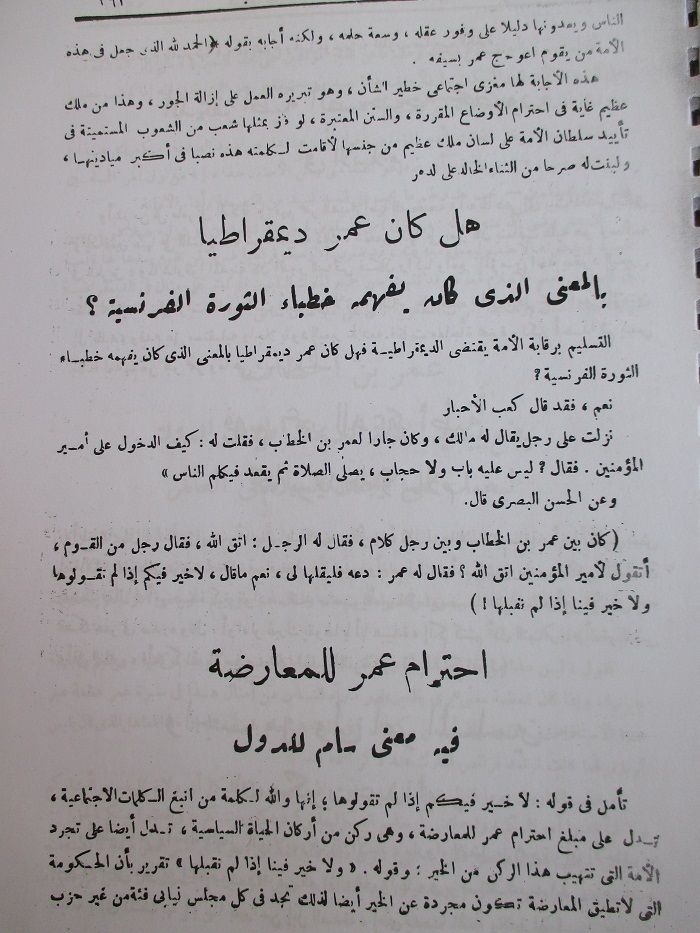 الناس ويعدونها دليلا على وفور عقله ، وسعة حلمه ، ولكنه أجابه بقوله « الحمد لله الذى جعل فى هذه
الأمة من يقوم اعوجاج عمر بسيفه .
هذه الأجابة لها مغزى اجتماعى خطير الشأن ، وهو تبريره العمل على إزالة الجور ، وهذا من ملك
عظيم غاية فى احترام الأوضاع المقررة ، والسنن المعتبرة ، لو فاز بمثلها شعب من الشعوب المستميتة فى
تأييد سلطان الأمة على لسان ملك عظيم من جنسها لأقامت لكلمته هذه نصبا فى أكبر ميادينها ،
ولبنت له صرحا من الثناء الخالد على الدهر
هل كان عمر ديمقراطيا
بالمعنى الذى كان يفهمه خطباء الثورة الفرنسية ؟
التسليم برقابة الأمة يقتضى الديمقراطية فهل كان عمر ديمقراطيا بالمعنى الذى كان يفهمه خطباء
الثورة الفرنسية ؟
نعم ، فقد قال كعب الأحبار
نزلت على رجل يقال له مالك ، وكان جارا لعمر بن الخطاب ، فقلت له : كيف الدخول على أمير
المؤمنين . فقال ؟ ليس عليه باب ولا حجاب ، يصلى الصلاة ثم يقعد فيكلم الناس »
وعن الحسن البصرى قال.
( كان بين عمر بن الخطاب وبين رجل كلام ، فقال له الرجل : اتق الله ، فقال رجل من القوم ،
أتقول لأمير المؤمنين اتق الله ؟ فقال له عمر : دعه فليقلها لى ، نعم ماقال ، لاخير فيكم إذا لم تقولوها
ولا خير فينا إذا لم نقبلها ! )
احترام عمر للمعارضة
فيه معنى سام للدول
تأمل فى قوله : لا خير فيكم إذا لم تقولوها ؛ إنها والله لكلمة من انبغ الكلمات الاجتماعية ،
تدل على مبلغ احترام عمر للمعارضة ، وهى ركن من أركان الحياة السياسية ، تدل أيضا على تجرد
الأمة التى تتهيب هذا الركن من الخير : وقوله . « ولا خير فينا إذا لم نقبلها » تقرير بأن الحكومة
التى لاتطيق المعارضة تكون مجردة عن الخير أيضا لذلك تجد فى كل مجلس نيابى فئة من غير حزب